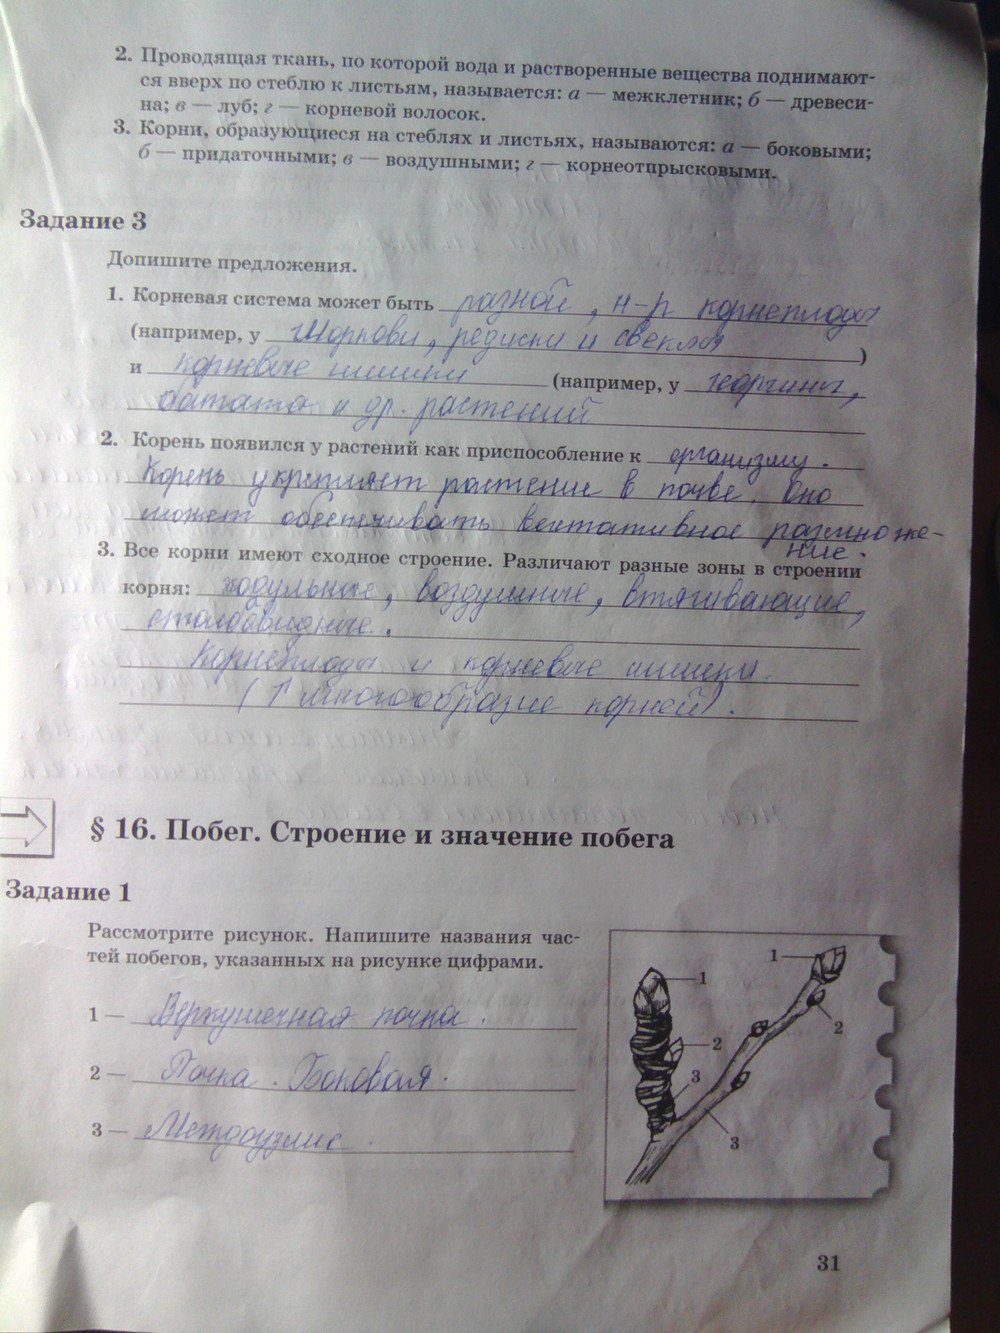 2. Проводящая ткань, по которой вода и растворенные вещества поднимают-
ся вверх по стеблю к листьям, называется: а — межклетник; б — древеси-
на; в — луб; г — корневой волосок.
3. Корни, образующиеся на стеблях и листьях, называются: а — боковыми;
б — придаточными; в — воздушными; г — корнеотпрысковыми.
Задание 3
Допишите предложения.
1. Корневая система может быть разной, н-р корнеплоды
(например, у моркови, редиски и свеклы )
и корневые шишки (например, у георгины,
батата и др. растений
2. Корень появился у растений как приспособление к организму.
Корень укрепляет растение в почве. Оно
может обеспечивать вегетативное размноже-
ние.
3. Все корни имеют сходное строение. Различают разные зоны в строении
корня: ходульные, воздушные, втягивающие,
столбовидные.
Корнеплоды и корневые шишки.
( ↑ многообразие корней).
§ 16. Побег. Строение и значение побега
Задание 1
Рассмотрите рисунок. Напишите названия час-
тей побегов, указанных на рисунке цифрами.
1 — Верхушечная почка.
2 — Почка. Боковая.
3 — Междоузлие.
1
1
2
2
3
3
31